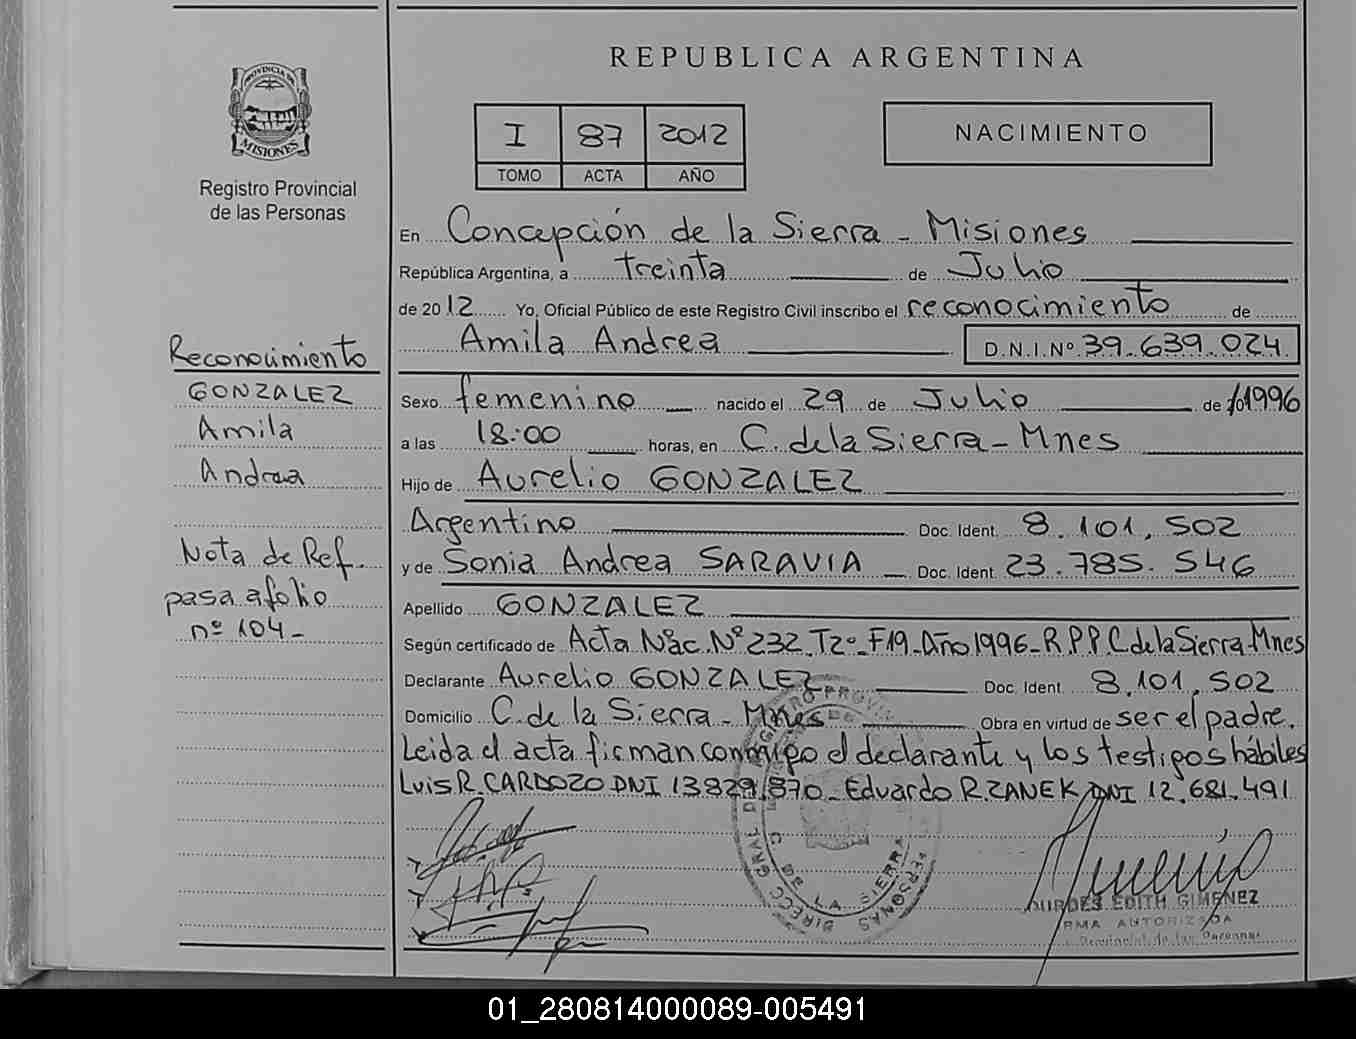 REPUBLICA ARGENTINA
PROVINCIA DE
MISIONES
Registro Provincial
de las Personas
I 87 2012
TOMO ACTA AÑO
NACIMIENTO
En Concepción de la Sierra - Misiones
República Argentina, a treinta de Julio
de 2012 Yo, Oficial Público de este Registro Civil inscribo el reconocimiento de
Amila Andrea D.N.I.Nº 39.639.024
Sexo femenino nacido el 29 de Julio de 1996
a las 18:00 horas, en C. de la Sierra - Mnes
Hijo de Aurelio GONZALEZ
Argentino Doc. Ident. 8.101.502
y de Sonia Andrea SARAVIA Doc. Ident. 23.785.546
Apellido GONZALEZ
Según certificado de Acta Nac. Nº 232 T2º F19 Año 1996 - R.P.P. C de la Sierra - Mnes
Declarante Aurelio GONZALEZ Doc. Ident. 8.101.502
Domicilio C. de la Sierra - Mnes Obra en virtud de ser el padre.
Leida el acta firman conmigo el declarante y los testigos hábiles
Luis R. CARDOZO DNI 13829.870 - Eduardo R. ZANEK DNI 12.681.491
Reconocimiento
GONZALEZ
Amila
Andrea
Nota de Ref.
pasa a folio
nº 104 -
C. DE LA SIERRA
PERSONAS
EDITH GIMENEZ
AUTORIZADA
01_280814000089-005491